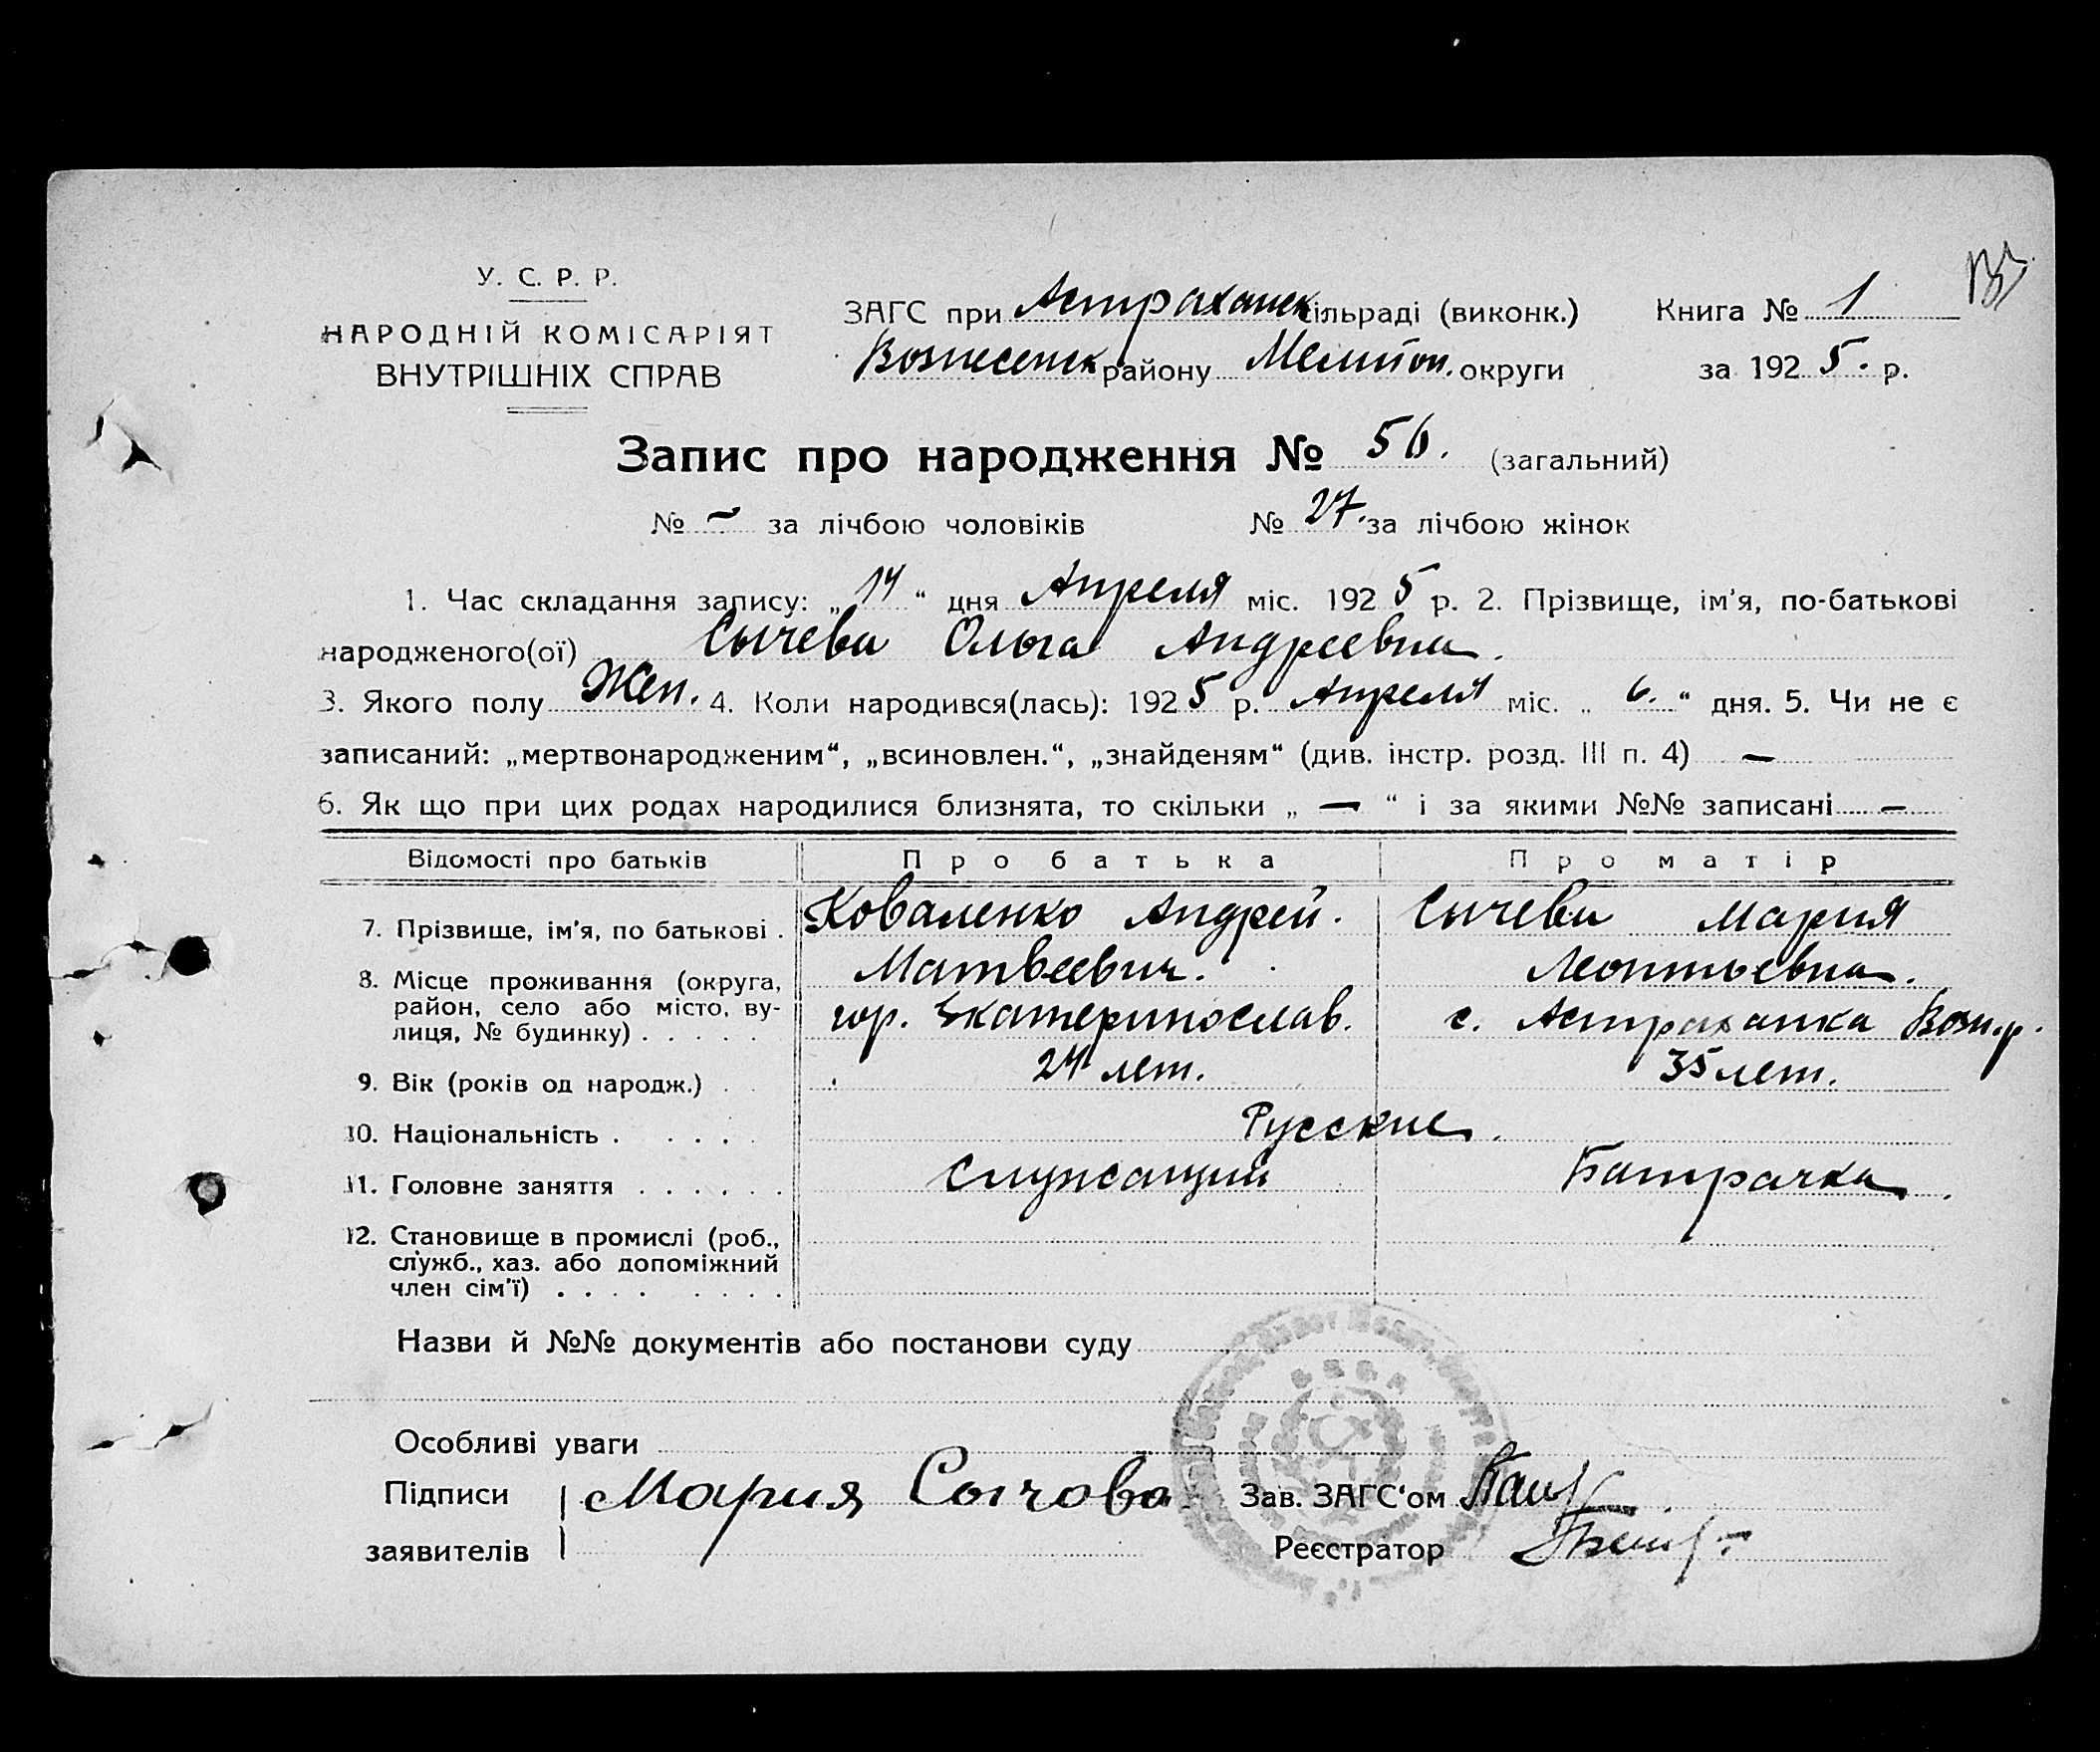 У. С. Р. Р.
НАРОДНІЙ КОМІСАРІЯТ
ВНУТРІШНІХ СПРАВ
ЗАГС при Астраханск сільраді (виконк.)
Вознесенск району Мелитоп. округи
Книга № 1
за 1925. р.
Запис про народження № 56. (загальний)
№ - за лічбою чоловіків № 27. за лічбою жінок
1. Час складання запису: „14“ дня Апреля міс. 1925 р. 2. Прізвище, ім’я, по-батькові
народженого(ої) Сычева Ольга Андреевна.
3. Якого полу Жен. 4. Коли народився(лась): 1925 р. Апреля міс. „6.“ дня. 5. Чи не є
записаний: „мертвонародженим“, „всиновлен.“, „знайденям“ (див. інстр. розд. III п. 4) —
6. Як що при цих родах народилися близнята, то скільки „ — “ і за якими №№ записані —
Відомості про батьків Про батька Про матір
7. Прізвище, ім’я, по батькові . Коваленко Андрей. Сычева Мария
Матвеевич. Леонтьевна.
8. Місце проживання (округа,
район, село або місто, ву-
лиця, № будинку) . . . . . гор. Екатеринослав. с. Астраханка Возн.р.
9. Вік (років од народж.) . . 24 лет. 35 лет.
10. Національність . . . . . Русские.
11. Головне заняття . . . . . . Служащий Батрачка.
12. Становище в промислі (роб.,
служб., хаз. або допоміжний
член сім’ї) . . . . . . . .
Назви й №№ документів або постанови суду
Особливі уваги
Підписи Мария Сычова Зав. ЗАГС‘ом
заявителів Реєстратор